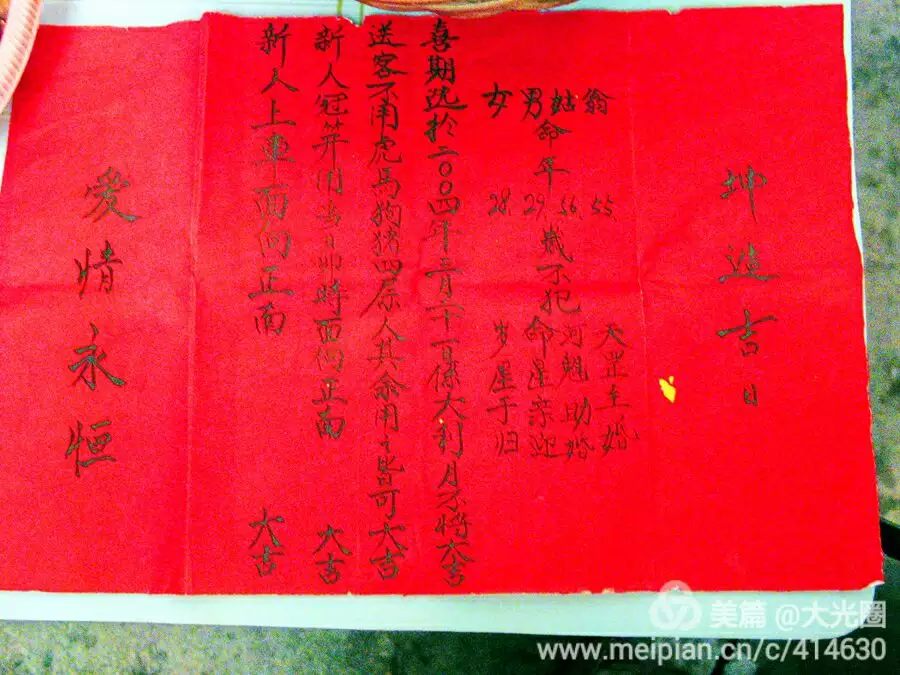 坤造吉日
翁 55 天罡主婚
姑 56 河魁助婚
男命年 29 歲不犯命星亲迎
女 28 岁星于归
喜期选於二〇〇四年二月二十一日係大利月不将大吉
送客不用虎马狗猪四属人其余用之皆可大吉
新人冠笄用当日卯時面向正南 大吉
新人上車面向正南 大吉
爱情永恒
美篇 @大光圈
www.meipian.cn/c/414630